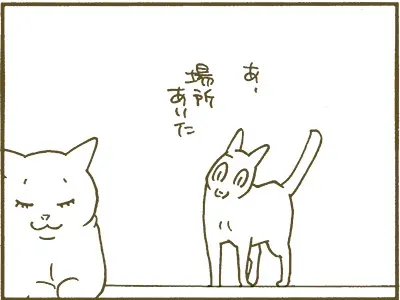 あ、
場所
あいた